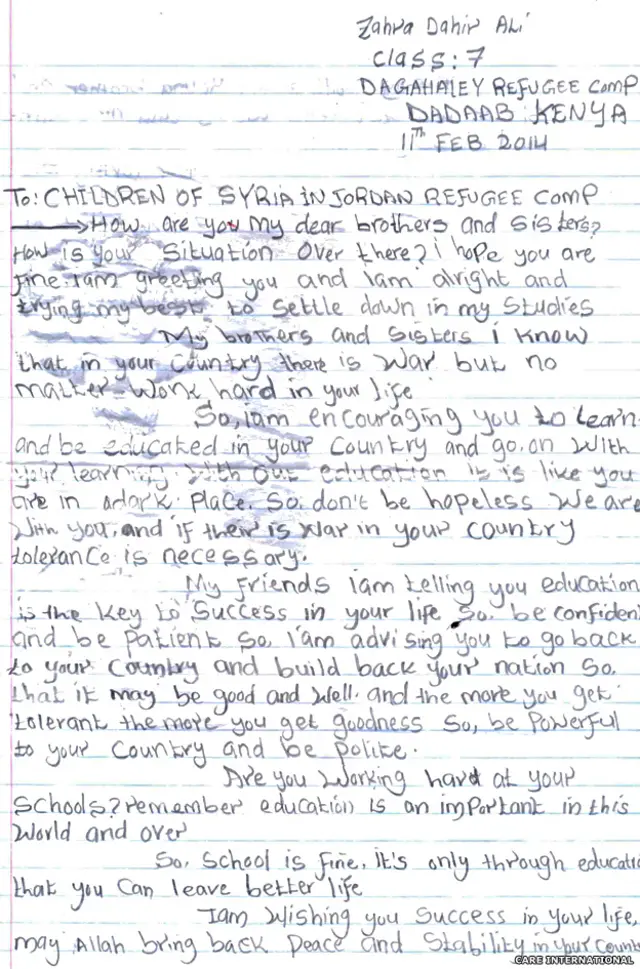 Zahra Dahir Ali
Class: 7
DAGAHALEY REFUGEE Comp
DADAAB KENYA
11th FEB 2014
To: CHILDREN OF SYRIA IN JORDAN REFUGEE Comp
How are you my dear brothers and sisters?
How is your situation over there? i hope you are
fine. iam greeting you and iam alright and
trying my best to settle down in my studies
My brothers and sisters i know
that in your country there is war but no
matter work hard in your life
So, iam encouraging you to learn
and be educated in your country and go, on with
your learning. with out education it is like you
are in a dark place. So, don't be hopeless we are
with you, and if their is war in your country
tolerance is necessary.
My friends iam telling you education
is the key to success in your life So, be confiden
and be patient so, i'am advising you to go back
to your country and build back your nation so.
that it may be good and well. and the more you get
tolerant the more you get goodness So, be powerful
to your country and be polite.
Are you working hard at your
schools? remember education is an important in this
world and over
So, school is fine. it's only through educati
that you can leave better life
Iam wishing you success in your life,
may Allah bring back peace and stability in your count
CARE INTERNATIONAL